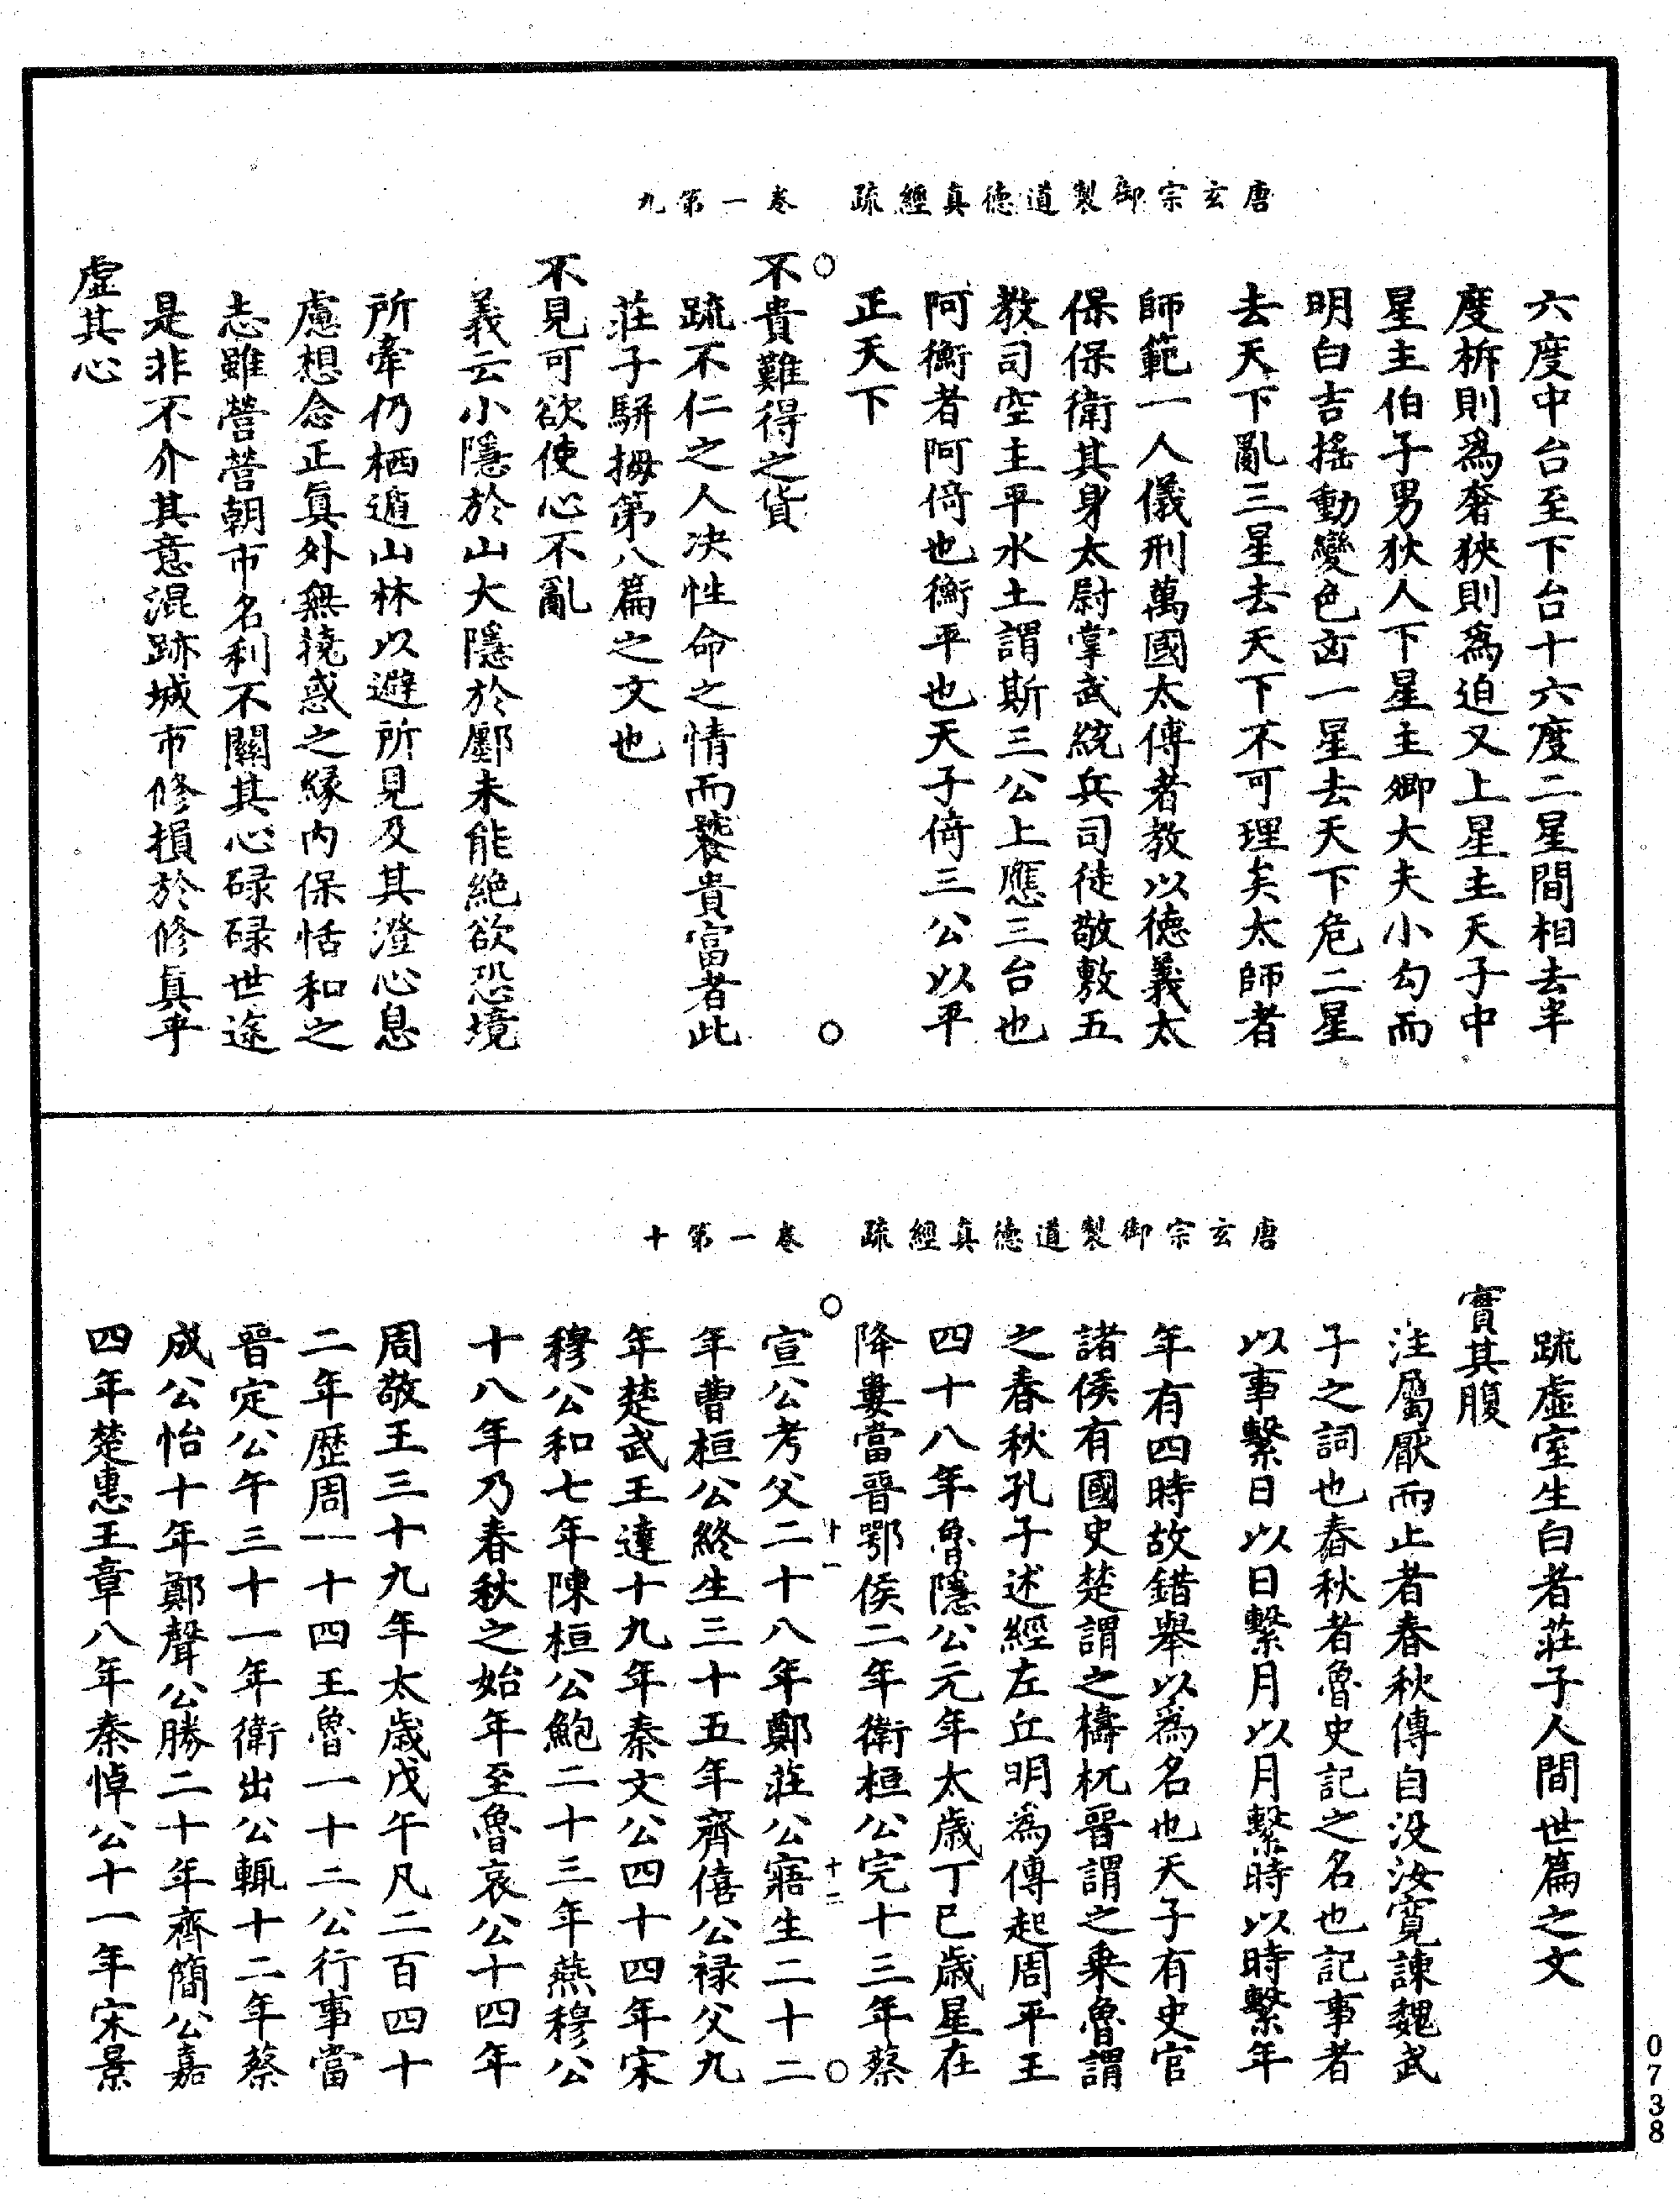 唐玄宗御製道德真經疏　卷一第九
六度中台至下台十六度二星間相去半
度柝則爲奢狹則爲迫又上星主天子中
星主伯子男狄人下星主卿大夫小勾而
明白吉揺動變色凶一星去天下危二星
去天下亂三星去天下不可理矣太師者
師範一人儀刑萬國太傅者教以德義太
保保衛其身太尉掌武統兵司徒敬敷五
教司空主平水土謂斯三公上應三台也
阿衡者阿倚也衡平也天子倚三公以平
正天下
○○
不貴難得之貨
䟽不仁之人决性命之情而饕貴富者此
莊子駢拇第八篇之文也
不見可欲使心不亂
義云小隱於山大隱於鄽未能絶欲恐境
所牽仍栖遁山林以避所見及其澄心息
慮想念正眞外無撓惑之縁内保恬和之
志雖營營朝市名利不關其心碌碌世途
是非不介其意混跡城市修損於修眞乎
虛其心
唐玄宗御製道德真經疏　卷一第十
䟽虛室生白者莊子人間世篇之文
實其腹
注屬厭而止者春秋傳自没汝寬諫魏武
子之詞也春秋者魯史記之名也記事者
以事繫日以日繫月以月繫時以時繫年
年有四時故錯舉以爲名也天子有史官
諸侯有國史楚謂之檮杌晉謂之乗魯謂
之春秋孔子述經左丘明爲傳起周平王
四十八年魯隱公元年太歳丁巳歳星在
降婁當晉鄂侯二年衛桓公完十三年蔡
○十一十二○
宣公考父二十八年鄭莊公寤生二十二
年曹桓公終生三十五年齊僖公禄父九
年楚武王達十九年秦文公四十四年宋
穆公和七年陳桓公鮑二十三年燕穆公
十八年乃春秋之始年至魯哀公十四年
周敬王三十九年太歳戊午凡二百四十
二年歴周一十四王魯一十二公行事當
晉定公午三十一年衛出公輒十二年蔡
成公怡十年鄭聲公勝二十年齊簡公嘉
四年楚惠王章八年秦悼公十一年宋景
0738